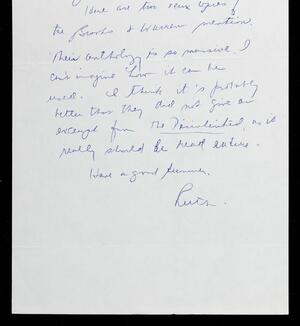 Here are two xerox copies of
the Brooks & Warren mention.
Their anthology is so massive, I
can't imagine how it can be
used. I think it's probably
better that they did not give an
excerpt from The Disinherited, as it
really should be read entire.
Have a good summer.
Ruth.